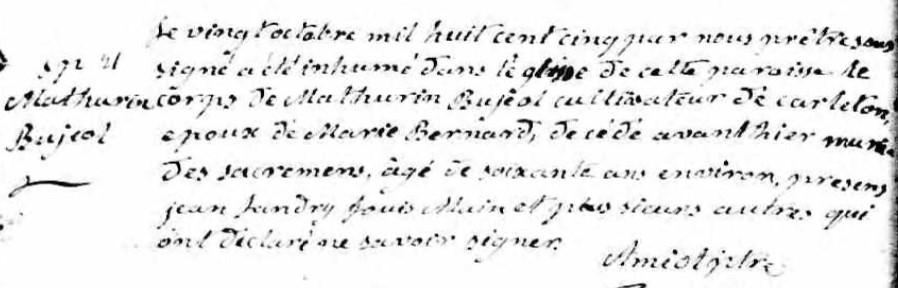 Le vingt octobre mil huit cent cinq par nous prêtre sous
signé a été inhumé dans l'église de cette paroisse le
Mathurin
corps de Mathurin Bujeol cultivateur de carleton,
Bujeol
epoux de Marie Bernard, décédé avanthier muni
des sacremens, âgé de soixante ans environ, presens
jean Landry Louis Alain et plusieurs autres qui
ont déclaré ne savoir signer.
Amiot ptre